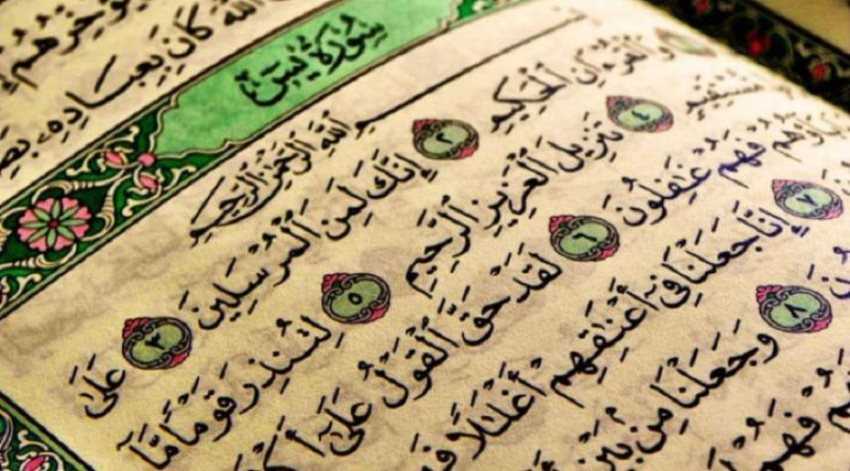 ٱللَّهَ كَانَ بِعِبَادِهِۦ
سُورَةُ يسٓ
بِسْمِ ٱللَّهِ ٱلرَّحْمَٰنِ ٱلرَّحِيمِ
وَٱلْقُرْءَانِ ٱلْحَكِيمِ ٢ إِنَّكَ لَمِنَ ٱلْمُرْسَلِينَ ٣ عَلَىٰ
مُّسْتَقِيمٍ ٤ تَنزِيلَ ٱلْعَزِيزِ ٱلرَّحِيمِ ٥ لِتُنذِرَ قَوْمًا مَّآ
فَهُمْ غَٰفِلُونَ ٦ لَقَدْ حَقَّ ٱلْقَوْلُ عَلَىٰٓ
٧ إِنَّا جَعَلْنَا فِىٓ أَعْنَٰقِهِمْ أَغْلَٰلًا
٨ وَجَعَلْنَا مِنۢ بَيْنِ